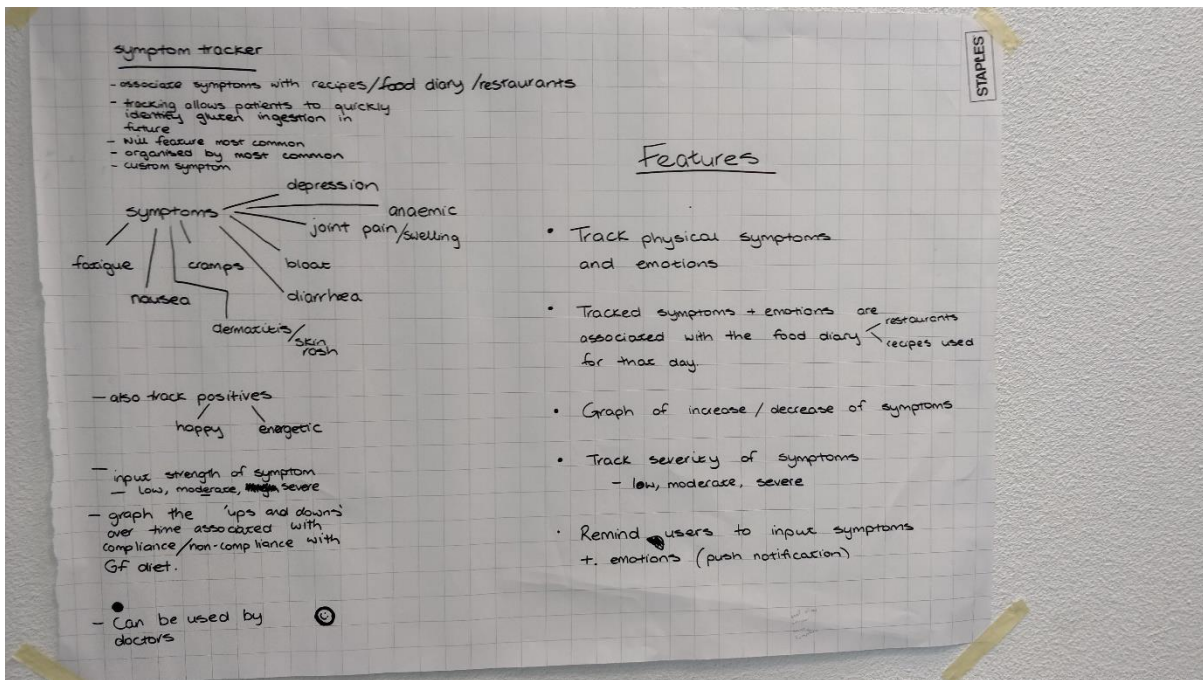 symptom tracker
- associate symptoms with recipes/food diary/restaurants
- tracking allows patients to quickly
identify gluten ingestion in
future
- will feature most common
- organised by most common
- custom symptom
depression
symptoms
anaemic
joint pain/swelling
fatigue
cramps
bloat
nausea
diarrhea
dermatitis/
skin
rash
- also track positives
happy
energetic
- input strength of symptom
- low, moderate, severe
- graph the 'ups and downs'
over time associated with
compliance/non-compliance with
GF diet.
- Can be used by
doctors
STAPLES
Features
• Track physical symptoms
and emotions
• Tracked symptoms + emotions are
associated with the food diary
restaurants
recipes used
for that day.
• Graph of increase / decrease of symptoms
• Track severity of symptoms
- low, moderate, severe
• Remind users to input symptoms
+. emotions (push notification)